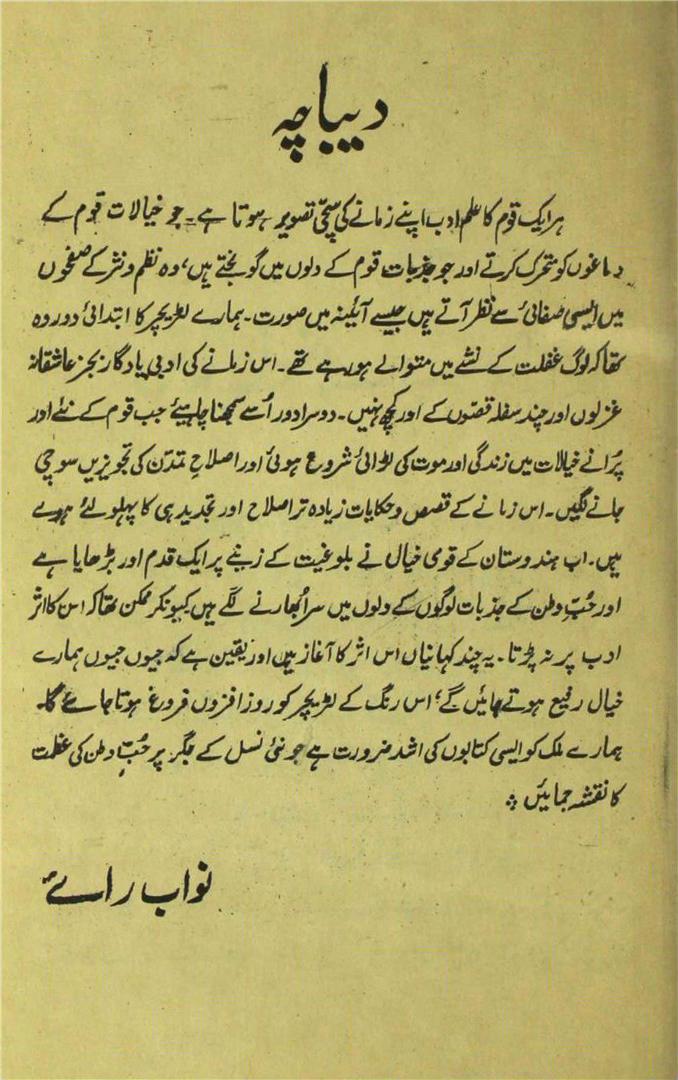 دیباچہ
ہر ایک قوم کا علم ادب اپنے زمانے کی سچی تصویر ہوتا ہے۔ جو خیالات قوم کے
دماغوں کو متحرک کرتے اور جو جذبات قوم کے دلوں میں گونجتے ہیں، وہ نظم و نثر کے صفحوں
میں ایسی صفائی سے نظر آتے ہیں جیسے آئینہ میں صورت۔ ہمارے لٹریچر کا ابتدائی دور وہ
تھا کہ لوگ غفلت کے نشے میں متوالے ہو رہے تھے۔ اس زمانے کی ادبی یادگار بجز عاشقانہ
غزلوں اور چند سفلہ قصّوں کے اور کچھ نہیں۔ دوسرا دور اُسے سمجھنا چاہیئے جب قوم کے نئے اور
پُرانے خیالات میں زندگی اور موت کی لڑائی شروع ہوئی اور اصلاحِ تمدّن کی تجویزیں سوچی
جانے لگیں۔ اس زمانے کے قصص و حکایات زیادہ تر اصلاح اور تجدید ہی کا پہلو لئے ہوئے
ہیں۔ اب ہندوستان کے قومی خیال نے بلوغیت کے زینے پر ایک قدم اور بڑھایا ہے
اور حُبِّ وطن کے جذبات لوگوں کے دلوں میں سر اُبھارنے لگے ہیں کیونکر ممکن تھا کہ اس کا اثر
ادب پر نہ پڑتا۔ یہ چند کہانیاں اس اثر کا آغاز ہیں اور یقین ہے کہ جیوں جیوں ہمارے
خیال رفیع ہوتے جائیں گے، اس رنگ کے لٹریچر کو روز افزوں فروغ ہوتا جائے گا۔
ہمارے ملک کو ایسی کتابوں کی اشد ضرورت ہے جو نئی نسل کے جگر پر حُبِّ وطن کی عظمت
کا نقشہ جمائیں ؞
نواب رائے